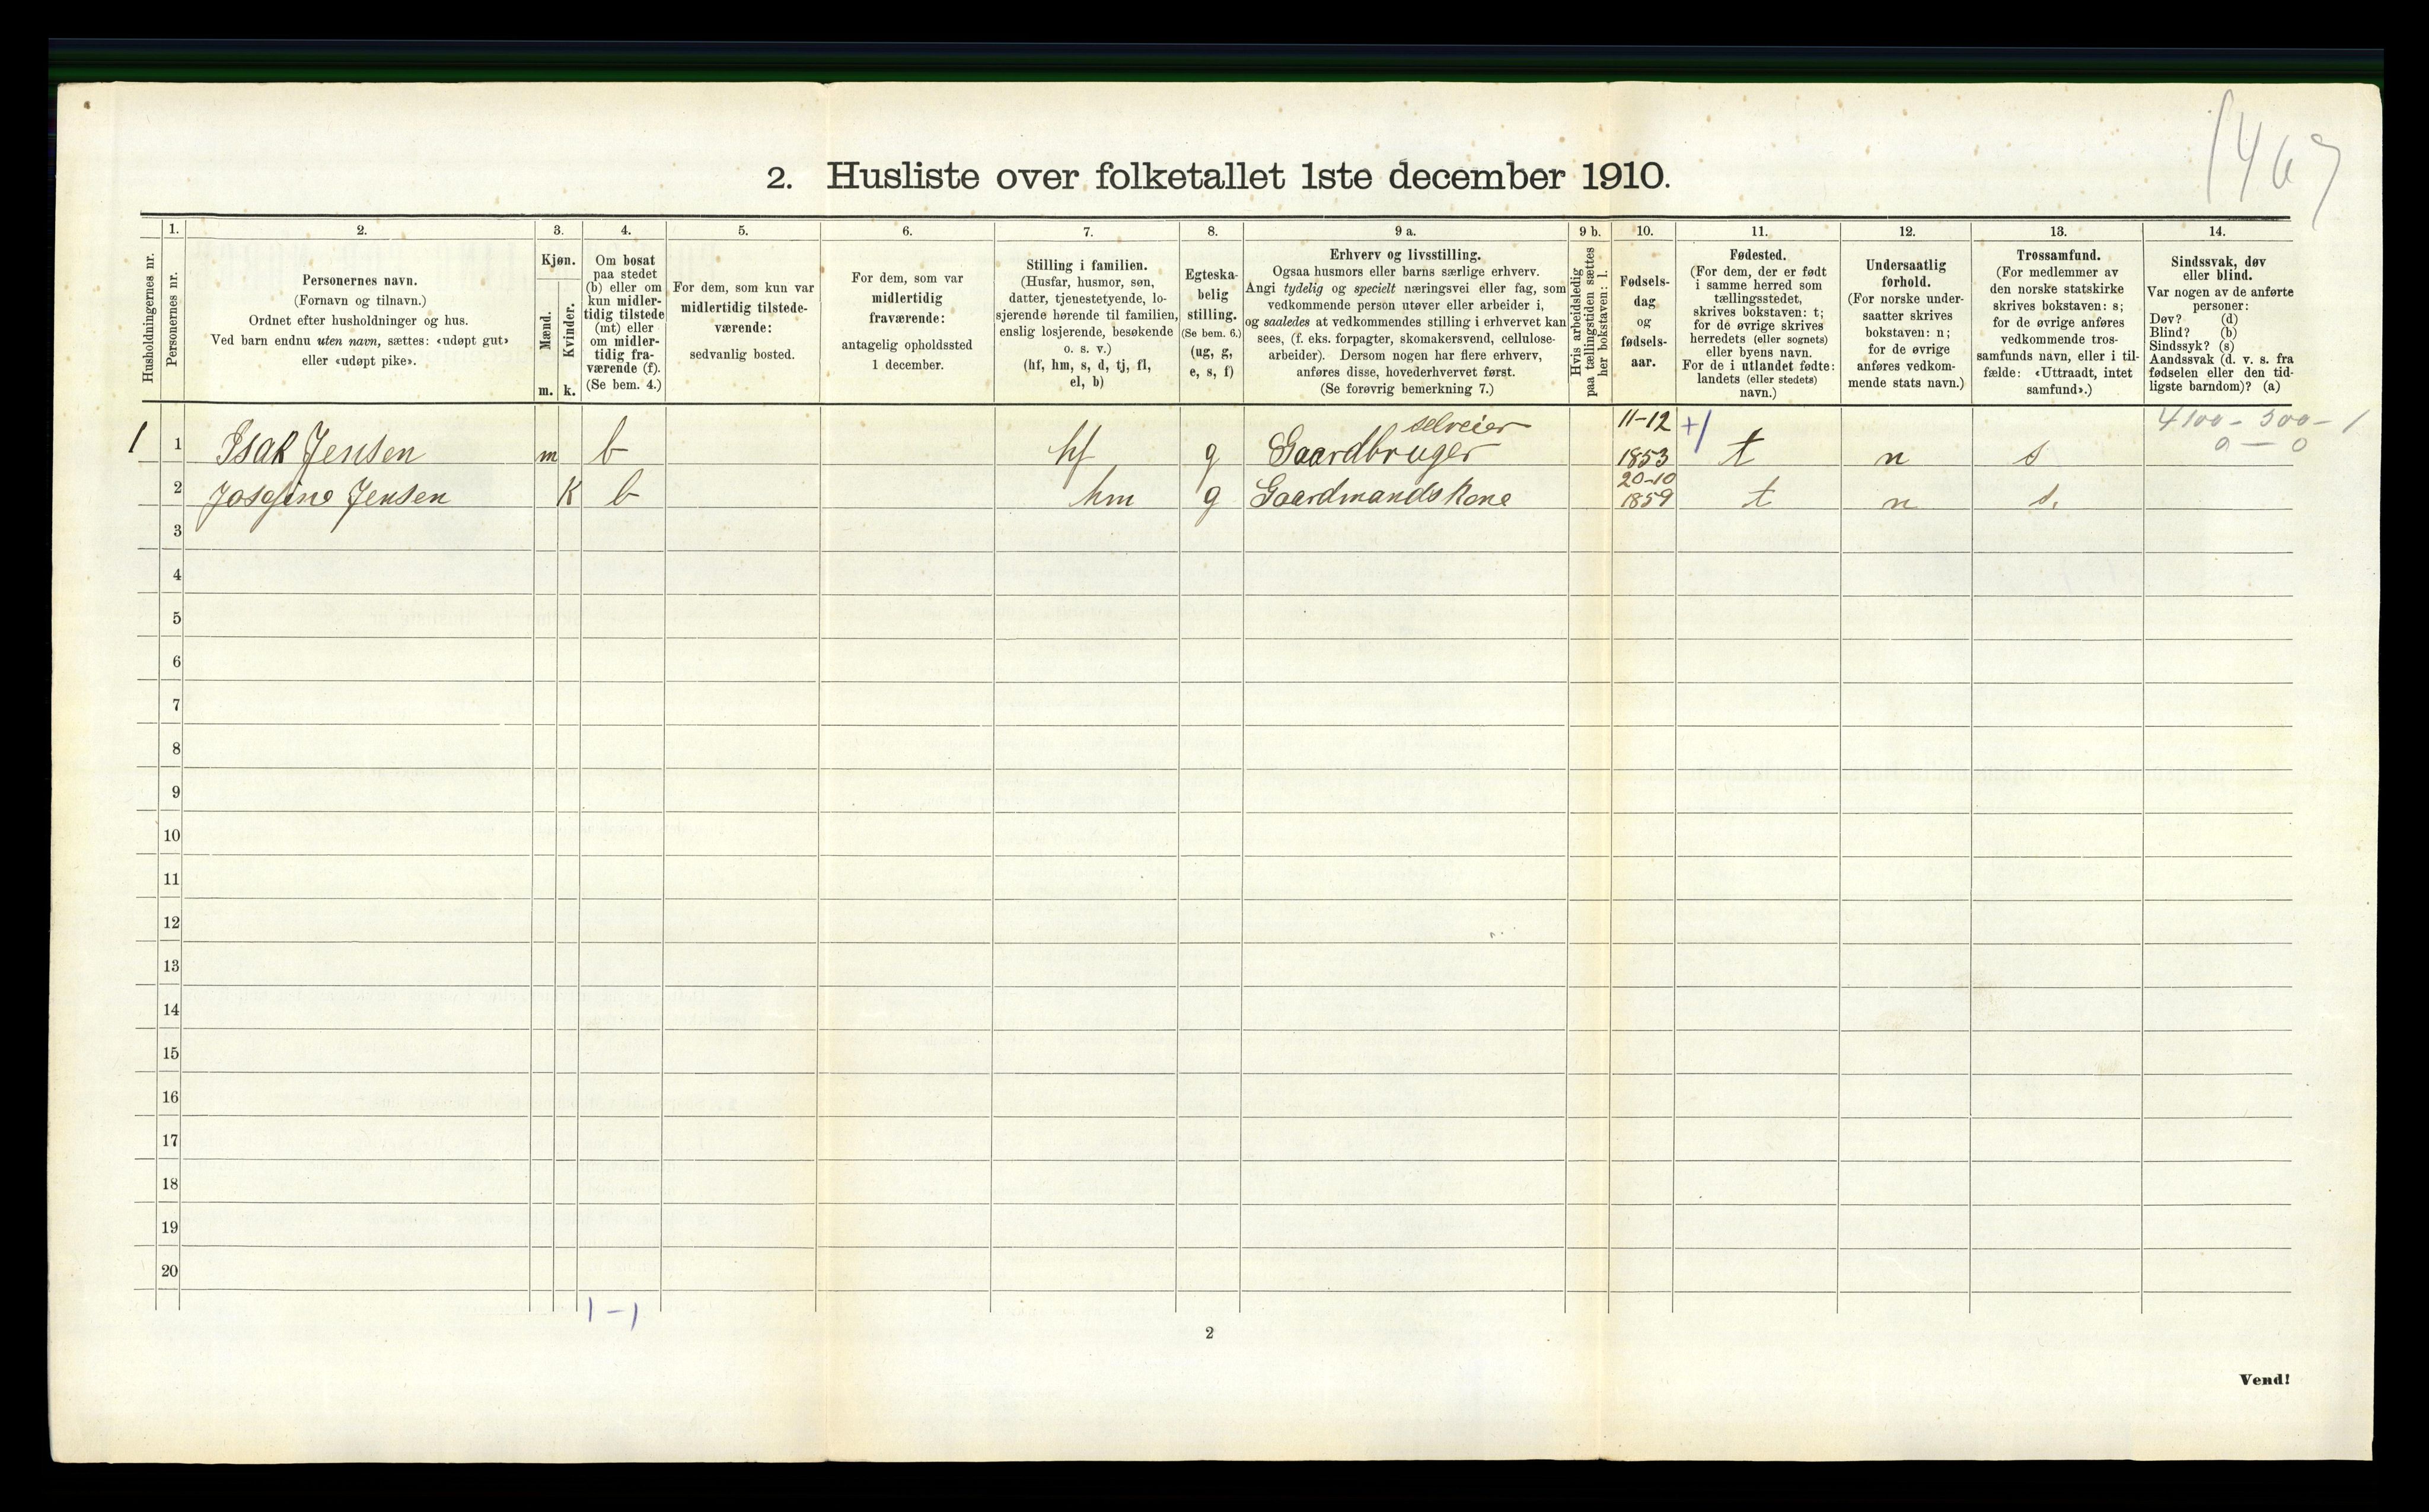 1467
2. Husliste over folketallet 1ste december 1910.
Husholdningernes nr.
1.
Personernes nr.
2.
Personernes navn.
(Fornavn og tilnavn.)
Ordnet efter husholdninger og hus.
Ved barn endnu uten navn, sættes: «udøpt gut»
eller «udøpt pike».
3.
Kjøn.
Mænd.
Kvinder.
m. k.
4.
Om bosat
paa stedet
(b) eller om
kun midler-
tidig tilstede
(mt) eller
om midler-
tidig fra-
værende (f).
(Se bem. 4.)
5.
For dem, som kun var
midlertidig tilstede-
værende:
sedvanlig bosted.
6.
For dem, som var
midlertidig
fraværende:
antagelig opholdssted
1 december.
7.
Stilling i familien.
(Husfar, husmor, søn,
datter, tjenestetyende, lo-
sjerende hørende til familien,
enslig losjerende, besøkende
o. s. v.)
(hf, hm, s, d, tj, fl,
el, b)
8.
Egteska-
belig
stilling.
(Se bem. 6.)
(ug, g,
e, s, f)
9 a.
Erhverv og livsstilling.
Ogsaa husmors eller barns særlige erhverv.
Angi tydelig og specielt næringsvei eller fag, som
vedkommende person utøver eller arbeider i,
og saaledes at vedkommendes stilling i erhvervet kan
sees, (f. eks. forpagter, skomakersvend, cellulose-
arbeider). Dersom nogen har flere erhverv,
anføres disse, hovederhvervet først.
(Se forøvrig bemerkning 7.)
9 b.
Hvis arbeidsledig
paa tællingstiden sættes
her bokstaven: l.
10.
Fødsels-
dag
og
fødsels-
aar.
11.
Fødested.
(For dem, der er født
i samme herred som
tællingsstedet,
skrives bokstaven: t;
for de øvrige skrives
herredets (eller sognets)
eller byens navn.
For de i utlandet fødte:
landets (eller stedets)
navn.)
12.
Undersaatlig
forhold.
(For norske under-
saatter skrives
bokstaven: n;
for de øvrige
anføres vedkom-
mende stats navn.)
13.
Trossamfund.
(For medlemmer av
den norske statskirke
skrives bokstaven: s;
for de øvrige anføres
vedkommende tros-
samfunds navn, eller i til-
fælde: «Uttraadt, intet
samfund».)
14.
Sindssvak, døv
eller blind.
Var nogen av de anførte
personer:
Døv? (d)
Blind? (b)
Sindssyk? (s)
Aandssvak (d. v. s. fra
fødselen eller den tid-
ligste barndom)? (a)
selveier 11-12 +1 4100 - 500 - 1
1 1 Isak Jensen m b hf g Gaardbruger 1853 t n s 0 — 0
20-10
2 Josefine Jensen K b hm g Gaardmandskone 1859 t n s.
3
4
5
6
7
8
9
10
11
12
13
14
15
16
17
18
19
20
1 - 1
2
Vend!